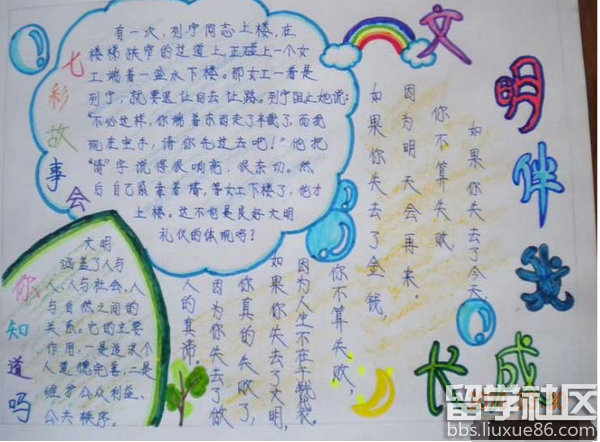 文明伴我成长
七彩故事会
有一次，列宁同志上楼，在
楼梯狭窄的过道上，正碰上一个女
工端着一盆水下楼。那女工一看是
列宁，就要退让自去让路。列宁阻止她说：
“不必这样，你端着东西走了半截了，而我
现在空手，请你先过去吧！”他把
“请”字说得很响亮，很亲切。然
后自己紧靠着墙，等女工下楼了，他才
上楼。这不也是良好文明
礼仪的体现吗？
如果你失去了今天，
你不算失败，
因为明天会再来。
如果你失去了金钱，
你不算失败，
因为人生不在于
如果你失去了文明，
你真的失败了，
因为你失去了做
人的真谛。
你知道吗
文明
涵盖了人与
人、人与社会、人
与自然之间的
关系。它的主要
作用，一是追求个
人道德完善，二是
维护公众利益、
公共秩序。
留学社区
bbs.liuxue86.com